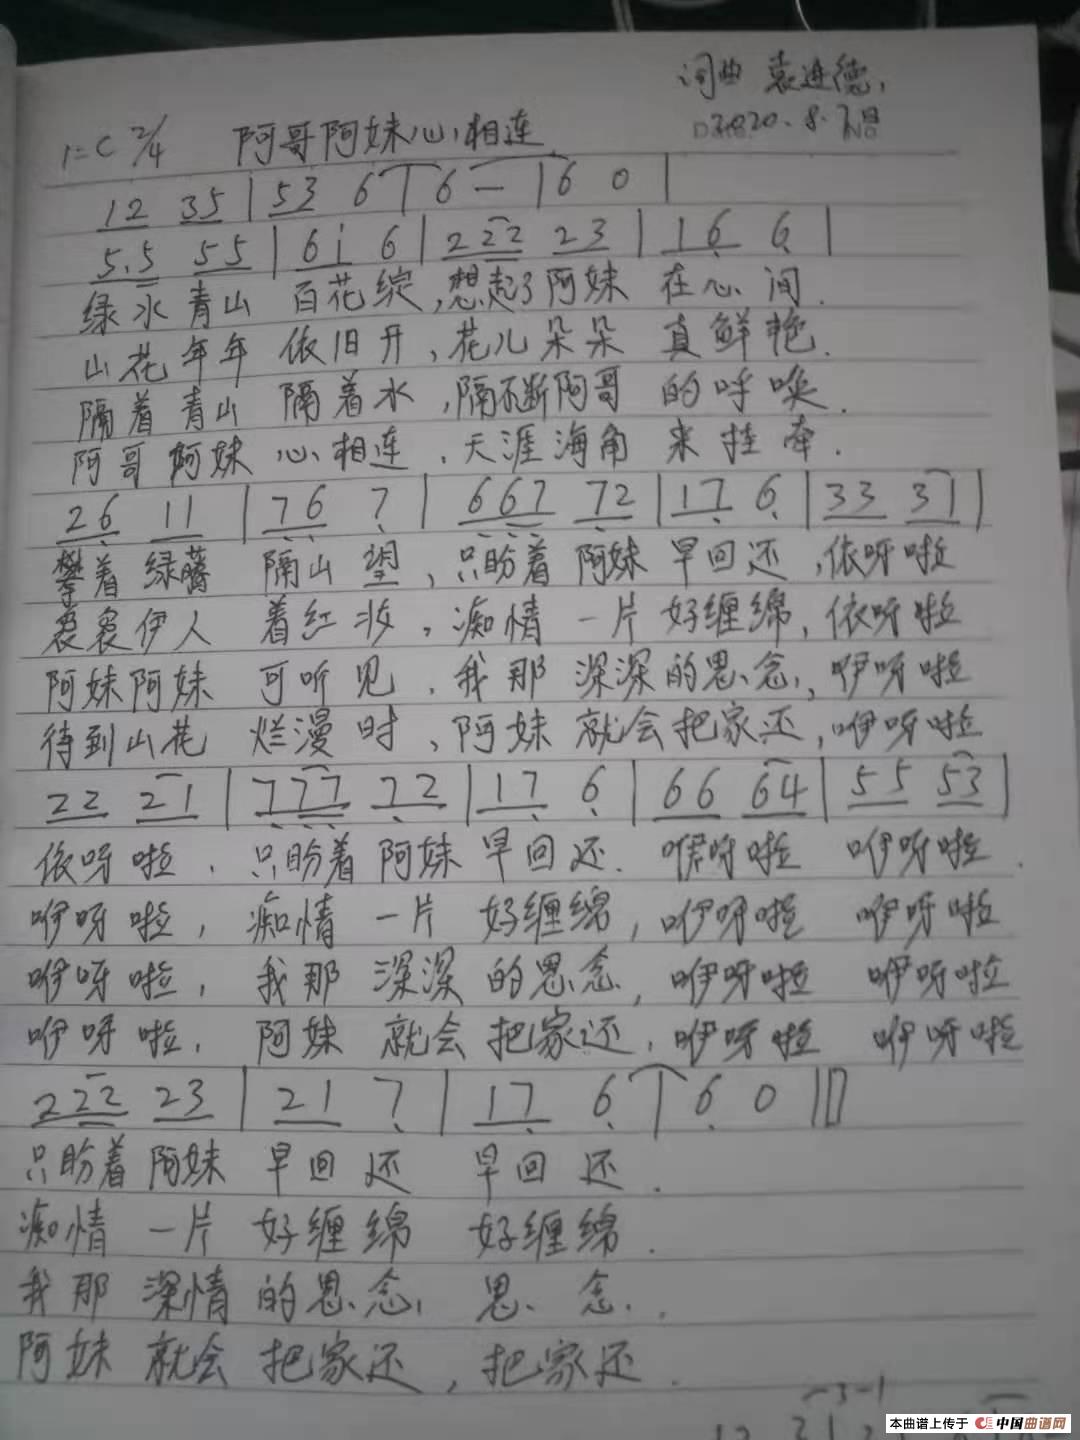 词曲 袁进德
2020.8.7日
1=C 2/4 阿哥阿妹心相连
12 35 | 53 6 | 6 — | 6 0 |
5.5 55 | 6i 6 | 222 23 | 16 6 |
绿水青山 百花绽,想起了阿妹 在心间.
山花年年 依旧开,花儿朵朵 真鲜艳.
隔着青山 隔着水,隔不断阿哥 的呼唤.
阿哥阿妹 心相连.天涯海角 来挂牵.
26 11 | 76 7 | 667 72 | 17 6 | 33 31 |
攀着绿藤 隔山望,只盼着阿妹 早回还,依呀啦
袅袅伊人 着红妆,痴情一片 好缠绵,依呀啦
阿妹阿妹 可听见.我那深深的思念,咿呀啦
待到山花 烂漫时,阿妹就会把家还,咿呀啦
22 21 | 777 72 | 17 6 | 66 64 | 55 53 |
依呀啦.只盼着阿妹 早回还.咿呀啦 咿呀啦.
咿呀啦,痴情一片 好缠绵,咿呀啦 咿呀啦
咿呀啦,我那深深的思念,咿呀啦 咿呀啦
咿呀啦.阿妹就会把家还,咿呀啦 咿呀啦
222 23 | 21 7 | 17 6 | 6 0 ‖
只盼着阿妹 早回还 早回还.
痴情一片 好缠绵 好缠绵.
我那深情的思念, 思念.
阿妹就会把家还,把家还.
本曲谱上传于 中国曲谱网